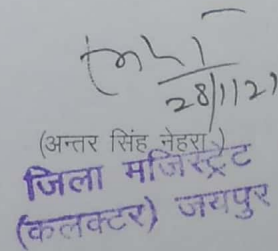 28/1/21
(अन्तर सिंह नेहरा)
जिला मजिस्ट्रेट
(कलक्टर) जयपुर